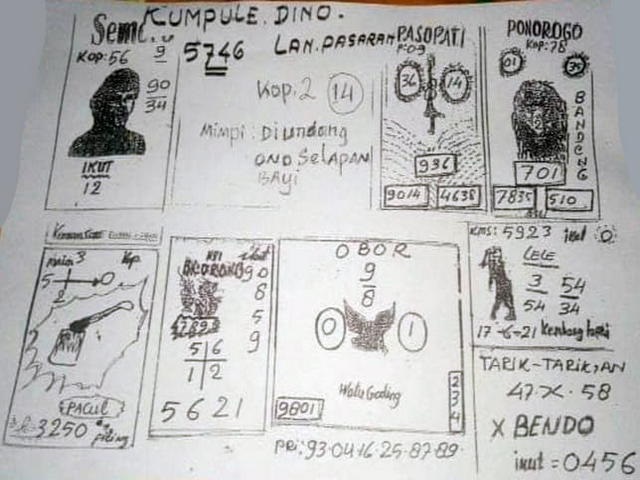 KUMPULE.DINO.
LAN.PASARAN
Kop:56
9
90
34
IKUT
12
5746
Kop:2 14
Mimpi: Diundang
ONO SELAPAN
BAYI
PASOPATI
P:09
36
14
936
9014 4638
PONOROGO
Kop:78
01
BANDENG
701
7835 510
main 3 Kop
5 0
2
PACUL
3250
BIORONO
90
8
5
9
4789
5 6
1 2
5621
OBOR
9
8
0 1
Walu Goding
2
3
4
9801
PRI:93·04·16·25·87·89
KMS: 5923 ikut
LELE
3 54
54 34
17-6-21 Kembang tari
TARIK-TARIK,AN
47·X·58
X BENDO
ikut = 0456